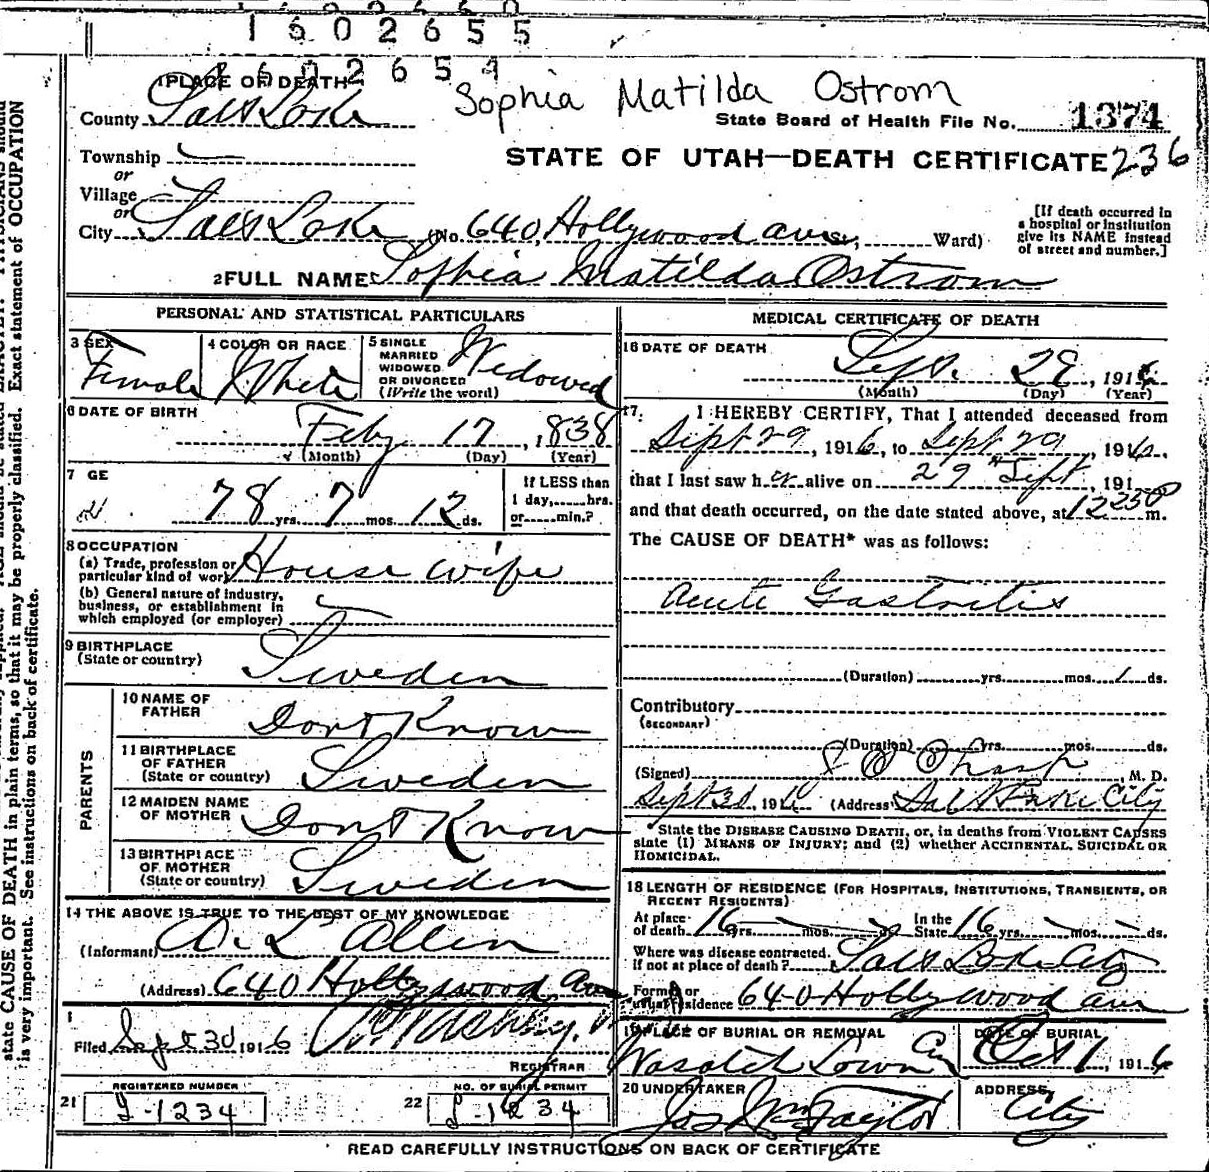 1602655
1602654
Sophia Matilda Ostrom
1 PLACE OF DEATH
County Salt Lake
State Board of Health File No. 1374
Township
or
Village
or
STATE OF UTAH—DEATH CERTIFICATE 236
City Salt Lake (No. 640, Hollywood ave St., Ward)
[If death occurred in
a hospital or institution
give its NAME instead
of street and number.]
2 FULL NAME Sophia Matilda Ostrom
PERSONAL AND STATISTICAL PARTICULARS
3 SEX
Female
4 COLOR OR RACE
White
5 SINGLE
MARRIED
WIDOWED
OR DIVORCED
(Write the word)
Widowed
6 DATE OF BIRTH
Feby 17, 1838
(Month) (Day) (Year)
7 GE
78 yrs. 7 mos. 12 ds.
If LESS than
1 day, hrs.
or min.?
8 OCCUPATION
(a) Trade, profession or
particular kind of work House wife
(b) General nature of industry,
business, or establishment in
which employed (or employer)
9 BIRTHPLACE
(State or country) Sweden
PARENTS
10 NAME OF
FATHER Dont Know
11 BIRTHPLACE
OF FATHER
(State or country) Sweden
12 MAIDEN NAME
OF MOTHER Dont Know
13 BIRTHPLACE
OF MOTHER
(State or country) Sweden
14 THE ABOVE IS TRUE TO THE BEST OF MY KNOWLEDGE
(Informant) A. L. Allen
(Address) 640 Hollywood Ave
Filed Sept 30 1916
REGISTRAR
REGISTERED NUMBER
21 J-1234
NO. OF BURIAL PERMIT
22 J-1234
MEDICAL CERTIFICATE OF DEATH
16 DATE OF DEATH
Sept. 29, 1916
(Month) (Day) (Year)
17. I HEREBY CERTIFY, That I attended deceased from
Sept 29, 1916, to Sept 29, 1916,
that I last saw her alive on 29" Sept, 191
and that death occurred, on the date stated above, at 12 25 P m.
The CAUSE OF DEATH* was as follows:
Acute Gastritis
(Duration) yrs. mos. 1 ds.
Contributory
(SECONDARY)
(Duration) yrs. mos. ds.
(Signed) Sharp, M. D.
Sept 30, 1916 (Address) Salt Lake City
*State the DISEASE CAUSING DEATH, or, in deaths from VIOLENT CAUSES
state (1) MEANS OF INJURY; and (2) whether ACCIDENTAL, SUICIDAL OR
HOMICIDAL.
18 LENGTH OF RESIDENCE (FOR HOSPITALS, INSTITUTIONS, TRANSIENTS, OR
RECENT RESIDENTS)
At place
of death 16 yrs. mos. ds. In the
State 16 yrs. mos. ds.
Where was disease contracted.
if not at place of death? Salt Lake City
Former or
usual residence 640 Hollywood ave
19 PLACE OF BURIAL OR REMOVAL
Wasatch Lawn Cem
DATE OF BURIAL
Oct 1, 1916
20 UNDERTAKER
Jos Wm Taylor
ADDRESS
City
READ CAREFULLY INSTRUCTIONS ON BACK OF CERTIFICATE
state CAUSE OF DEATH in plain terms, so that it may be properly classified. Exact statement of OCCUPATION
is very important. See instructions on back of certificate.